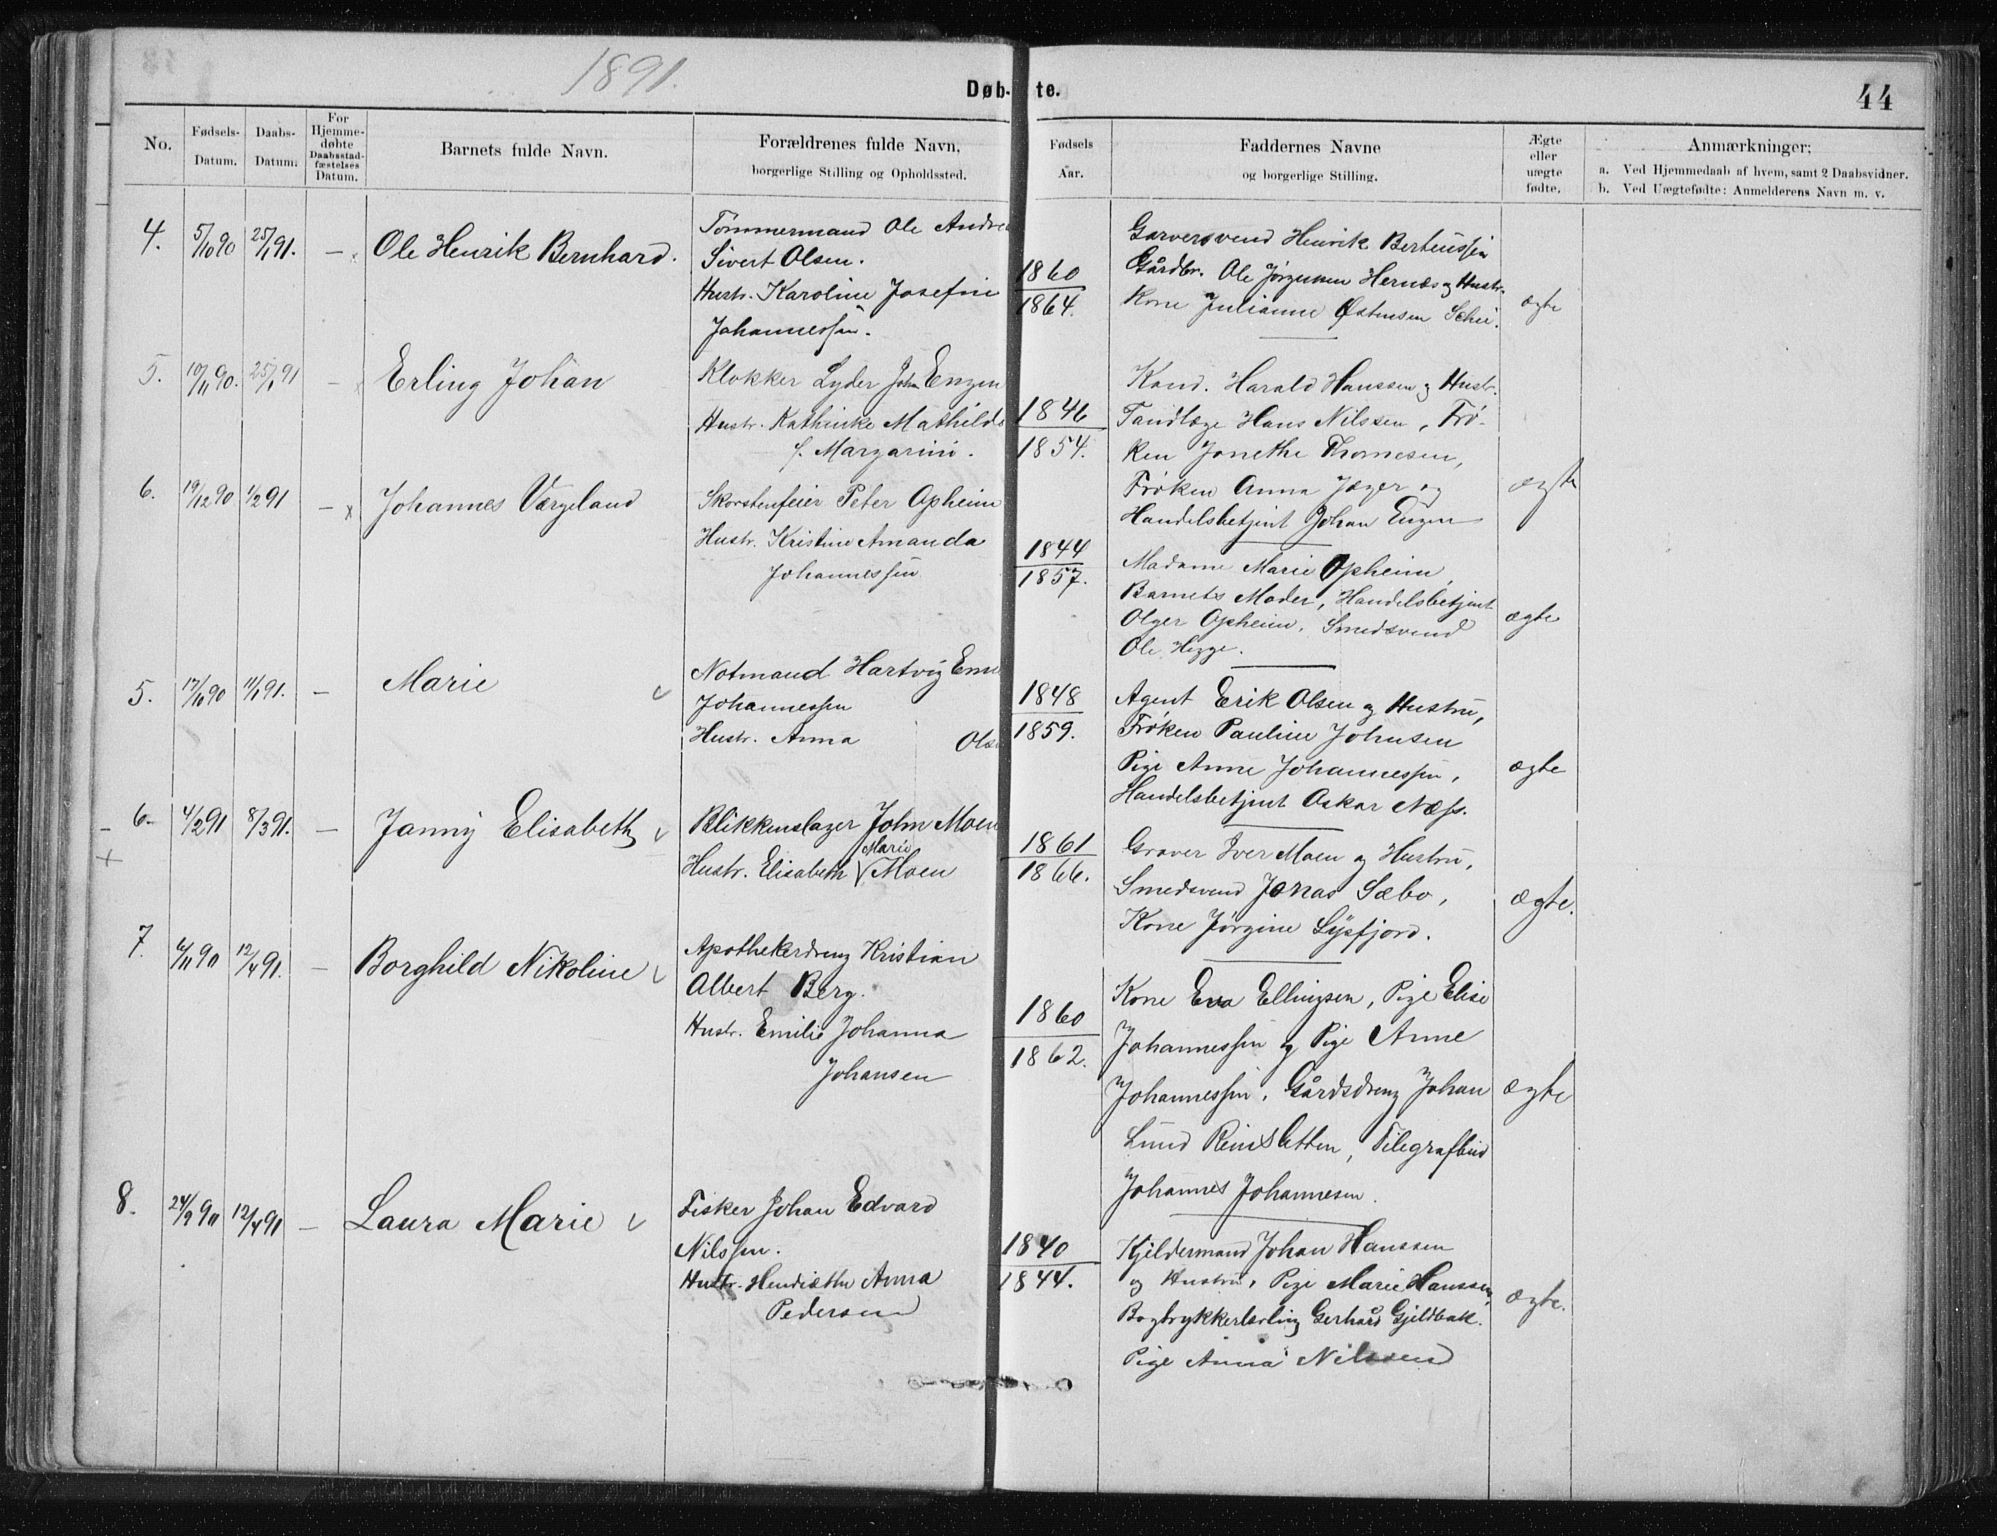 1891.
Døb-te.
44
No.
Fødsels-Datum.
Daabs-Datum.
For Hjemme-døbte Daabsstad-fæstelses Datum.
Barnets fulde Navn.
Forældrenes fulde Navn,
borgerlige Stilling og Opholdssted.
Fødsels Aar.
Faddernes Navne
og borgerlige Stilling.
Ægte eller uægte fødte.
Anmærkninger;
a. Ved Hjemmedaab af hvem, samt 2 Daabsvidner.
b. Ved Uægtefødte: Anmelderens Navn m. v.
4. 5/10 90 25/1 91. — Ole Henrik Bernhard.
Tømmermand Ole Andre
Sivert Olsen.
Hustr. Karoline Josefine
Johannessen.
1860
1864.
Garversvend Henrik Berteussen
Gårdbr. Ole Jørgensen Hernæs og Hustr.
Kone Julianne Østensen
ægte
5. 10/11 90. 25/1 91 — Erling Johan
Klokker Lyder John Engen
Hustr. Kathinke Mathilde
f. Margarini.
1846
1854.
Kand. Harald Hanssen og Hustr.
Tandlæge Hans Nilssen, Frø-
ken Jonethe Thomesen,
Frøken Anna Jæger og
Handelsbetjent Johan Engen
ægte
6. 19/12 90 1/2 91 — x Johannes Værgeland
Skorstenfeier Peter Opheim
Hustr. Kristine Amanda
Johannessen
1844
1857.
Madame Marie Opheim,
Barnets Moder, Handelsbetjent
Olger Opheim, Smedsvend
Ole Hegge.
ægte
5. 17/10 90 11/1 91. — Marie
Notmand Hartvig
Johannessen
Hustr. Anna Olse
1848
1859.
Agent Erik Olsen og Hustru,
Frøken Pauline Johnsen
Pige Anne Johannessen,
Handelsbetjent Oskar Næss.
ægte
6- 4/2 91 8/3 91. — Janny Elisabeth
Blikkenslager John Moen
Hustr. Elisabeth Marie Moen
1861
1866.
Graver Iver Moen og Hustru,
Smedsvend Jonas Sæbo,
Kone Jørgine Lysfjord.
ægte.
7. 6/11 90 12/4 91. — Borghild Nikoline
Apothekerdreng Kristian
Albert Berg.
Hustr. Emilie Johanna
Johansen
1860
1862.
Kone Eva Ellingsen, Pige Elise
Johannessen og Pige Anne
Johannessen, Gårdsdreng Johan
Lund Reinsletten, Telegrafbud
Johannes Johannesen.
ægte
8. 24/9 90 12/4 91 — Laura Marie
Fisker Johan Edvard
Nilssen.
Hustr. Henriethe Anna
Pedersen
1840
1844.
Kjeldermand Johan Hanssen
og Hustru, Pige Marie Hanssen,
Bogtrykkerlærling Gerhard Gjeldbak.
Pige Anna Nilssen
ægte.